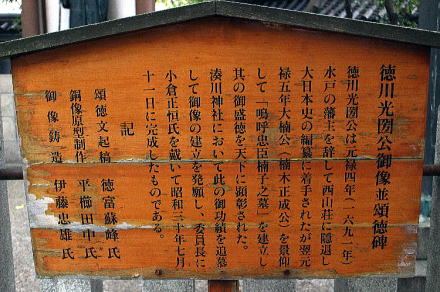 徳川光圀公御像並頌徳碑
徳川光圀公は元禄四年（一六九一年）
水戸の藩主を辞して西山荘に隠退し
大日本史の編纂に着手されたが翌元
禄五年大楠公（楠木正成公）を景仰
して「嗚呼忠臣楠子之墓」を建立し
其の御盛徳を天下に顕彰された。
湊川神社において此の御功績を追慕
して御像の建立を発願し、委員長に
小倉正恒氏を戴いて昭和三十年七月
十一日に完成したものである。
記
頌徳文起稿 徳富蘇峰氏
銅像原型制作 平櫛田中氏
御像鋳造 伊藤忠雄氏